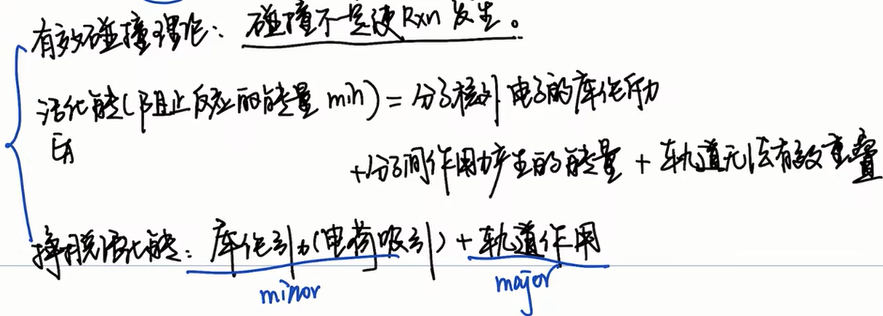 有效碰撞理论：碰撞不一定使Rxn发生。
活化能(阻止反应的能量 min) = 分子核外电子的库伦斥力
EA
+分子间作用力产生的能量 + 轨道无法有效重叠
挣脱活化能：库伦引力(电荷吸引) + 轨道作用
minor major